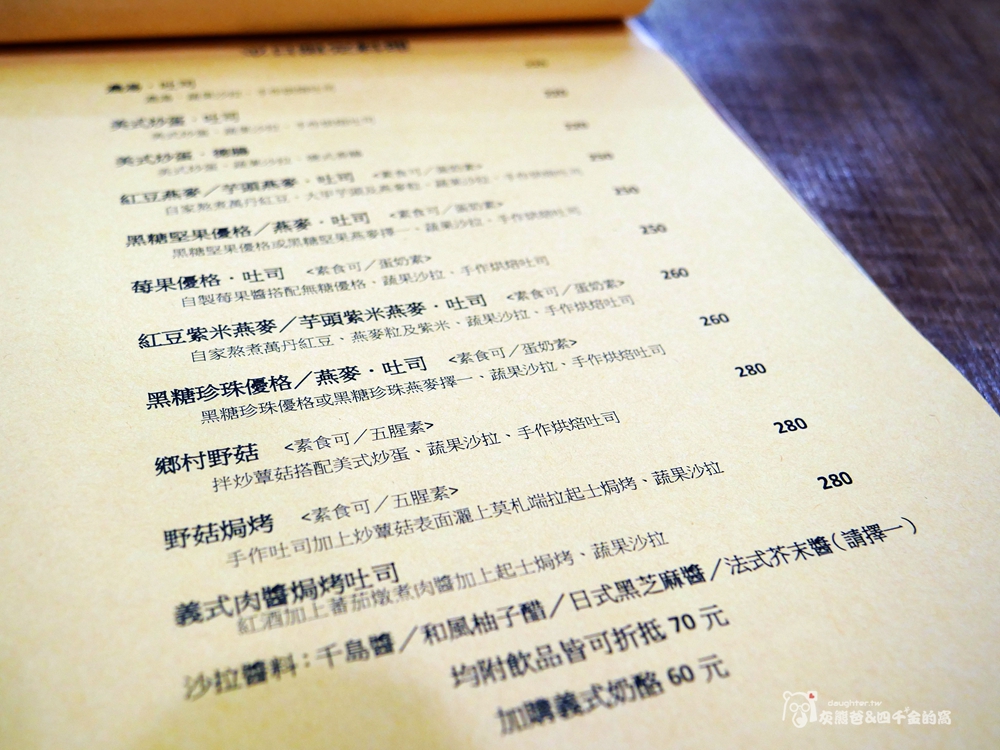 美式炒蛋・吐司
美式炒蛋・德腸
紅豆燕麥／芋頭燕麥・吐司 <素食可／蛋奶素>
自家熬煮萬丹紅豆、大甲芋頭及燕麥粒、蔬果沙拉、手作烘焙吐司
250
黑糖堅果優格／燕麥・吐司 <素食可／蛋奶素>
黑糖堅果優格或黑糖堅果燕麥擇一、蔬果沙拉、手作烘焙吐司
250
莓果優格・吐司 <素食可／蛋奶素>
自製莓果醬搭配無糖優格、蔬果沙拉、手作烘焙吐司
260
紅豆紫米燕麥／芋頭紫米燕麥・吐司 <素食可／蛋奶素>
自家熬煮萬丹紅豆、燕麥粒及紫米、蔬果沙拉、手作烘焙吐司
260
黑糖珍珠優格／燕麥・吐司 <素食可／蛋奶素>
黑糖珍珠優格或黑糖珍珠燕麥擇一、蔬果沙拉、手作烘焙吐司
280
鄉村野菇 <素食可／五腥素>
拌炒蕈菇搭配美式炒蛋、蔬果沙拉、手作烘焙吐司
280
野菇焗烤 <素食可／五腥素>
手作吐司加上炒蕈菇表面灑上莫札端拉起士焗烤、蔬果沙拉
280
義式肉醬焗烤吐司
紅酒加上蕃茄燉煮肉醬加上起士焗烤、蔬果沙拉
沙拉醬料：千島醬／和風柚子醋／日式黑芝麻醬／法式芥末醬（請擇一）
均附飲品皆可折抵 70 元
加購義式奶酪 60 元
daughter.tw
灰熊爸&四千金的窩